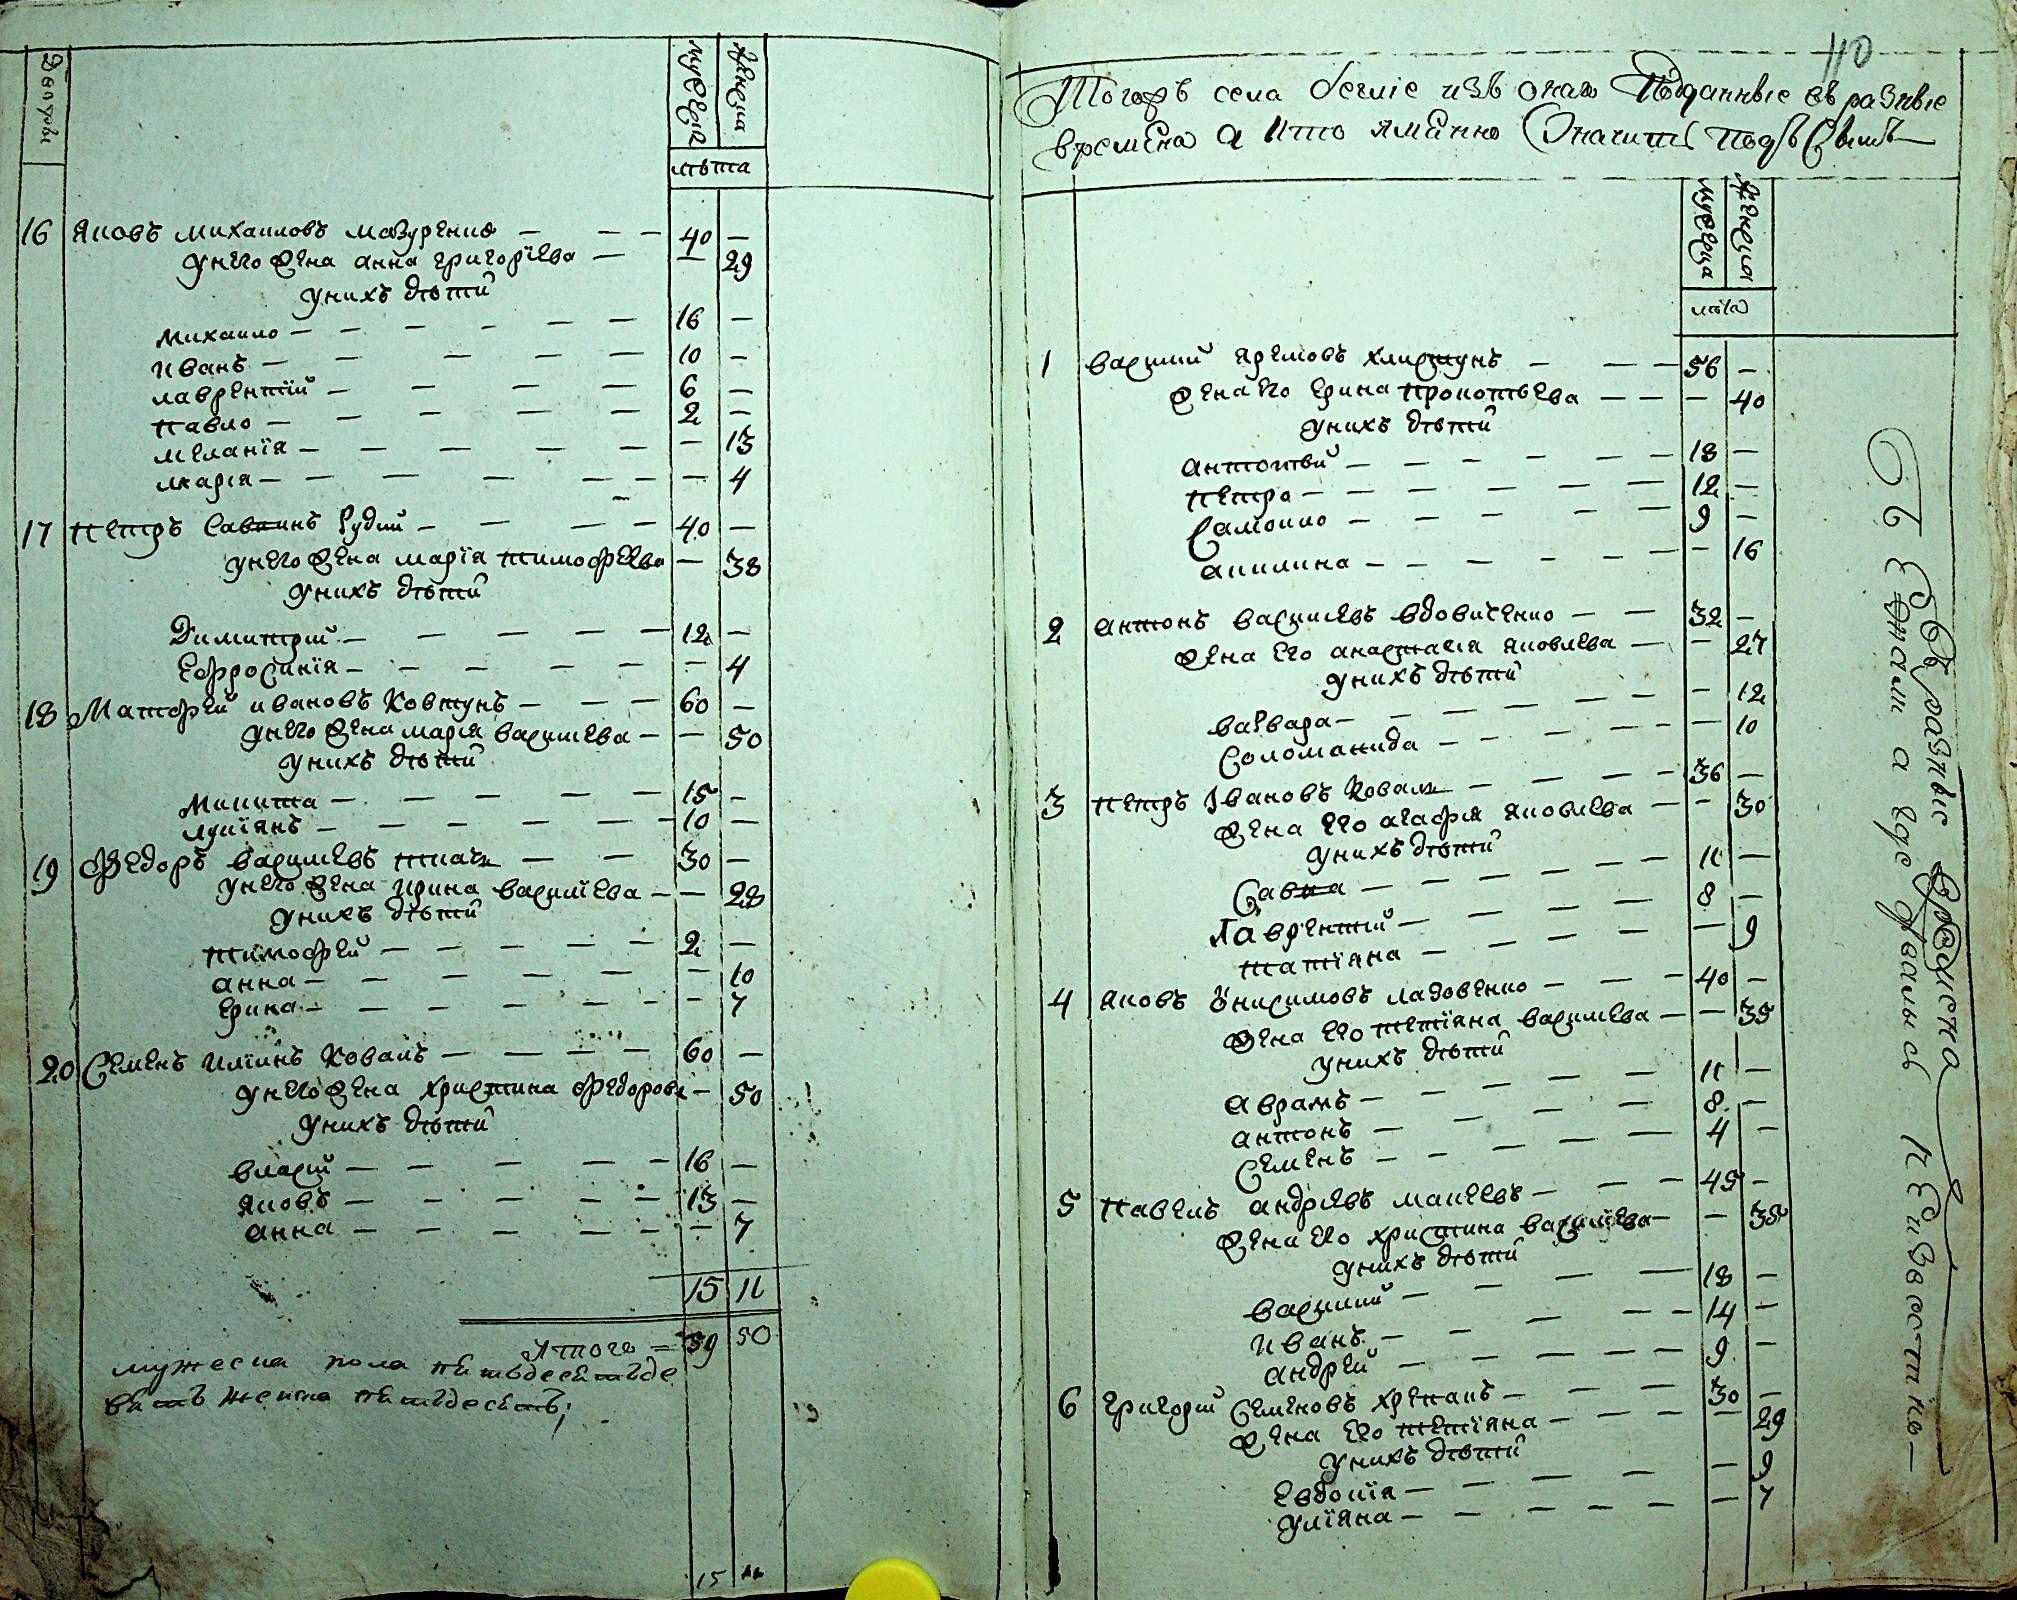 Дворы
мужеска
женска
лѣта
16 Яковъ михаиловъ мазуренко — 40 —
унего жена анна григоріева — — 29
унихъ дѣти
михаило — 16 —
иванъ — 10 —
лаврентій — 6 —
павло — 2 —
меланія — — 13
марія — — 4
17 петръ Савинъ Рудий — 40 —
унего жена марія тимофеева — — 38
унихъ дѣти
Димитрий — 12 —
Ефросинія — — 4
18 Матфей ивановъ Ковтунъ — 60 —
унего жена марія василиева — — 50
унихъ дѣти
Микита — 15 —
лукіянъ — 10 —
19 Федоръ василиевъ ткачъ — 30 —
унего жена ирина василіева — — 28
унихъ дѣти
тимофей — 2 —
анна — — 10
Ерина — — 7
20 Семенъ илїинъ Коваль — 60 —
унего жена христина федорова — 50
унихъ дѣти
власий — 16 —
Яковъ — 13 —
анна — — 7
15 11
Итого = 59 50
мужеска пола пятьдесятъде
вять женска пятьдесятъ;
15 11
110
Тогожъ села беглие изъ онаго Подданные въ разные
времена а кто имянно Значитъ подъ Симъ —
мужеска
женска
лѣта
1 василий яремовъ хлистунъ — 56 —
жена его Ерина прокопьева — — — 40
унихъ дѣти
антоний — 18 —
петро — 12 —
Самоило — 9 —
акилина — — 16
2 антонъ василиевъ вдовиченко — 32 —
жена его анастасія яковлева — — 27
унихъ дѣти
варвара — — 12
Соломанида — — 10
3 петръ Ивановъ Коваль — 36 —
жена его агафія яковлева — — 30
унихъ дѣти
Савка — 11 —
Лаврентий — 8 —
татіяна — — 9
4 яковъ онисимовъ ладовенко — 40 —
жена его тетіяна василиева — — 35
унихъ дѣти
аврамъ — 11 —
антонъ — 8 —
Семенъ — 4 —
5 павелъ андріевъ макеевъ — 45 —
жена его христина василіева — — 35
унихъ дѣти
василий — 18 —
иванъ — 14 —
андрей — 9 —
6 григорий Семеновъ хрѣпакъ — 30 —
жена его тетіяна — — 29
унихъ дѣти
Евдокія — — 9
уліяна — — 7
въ разные времена
а где неизвестно —